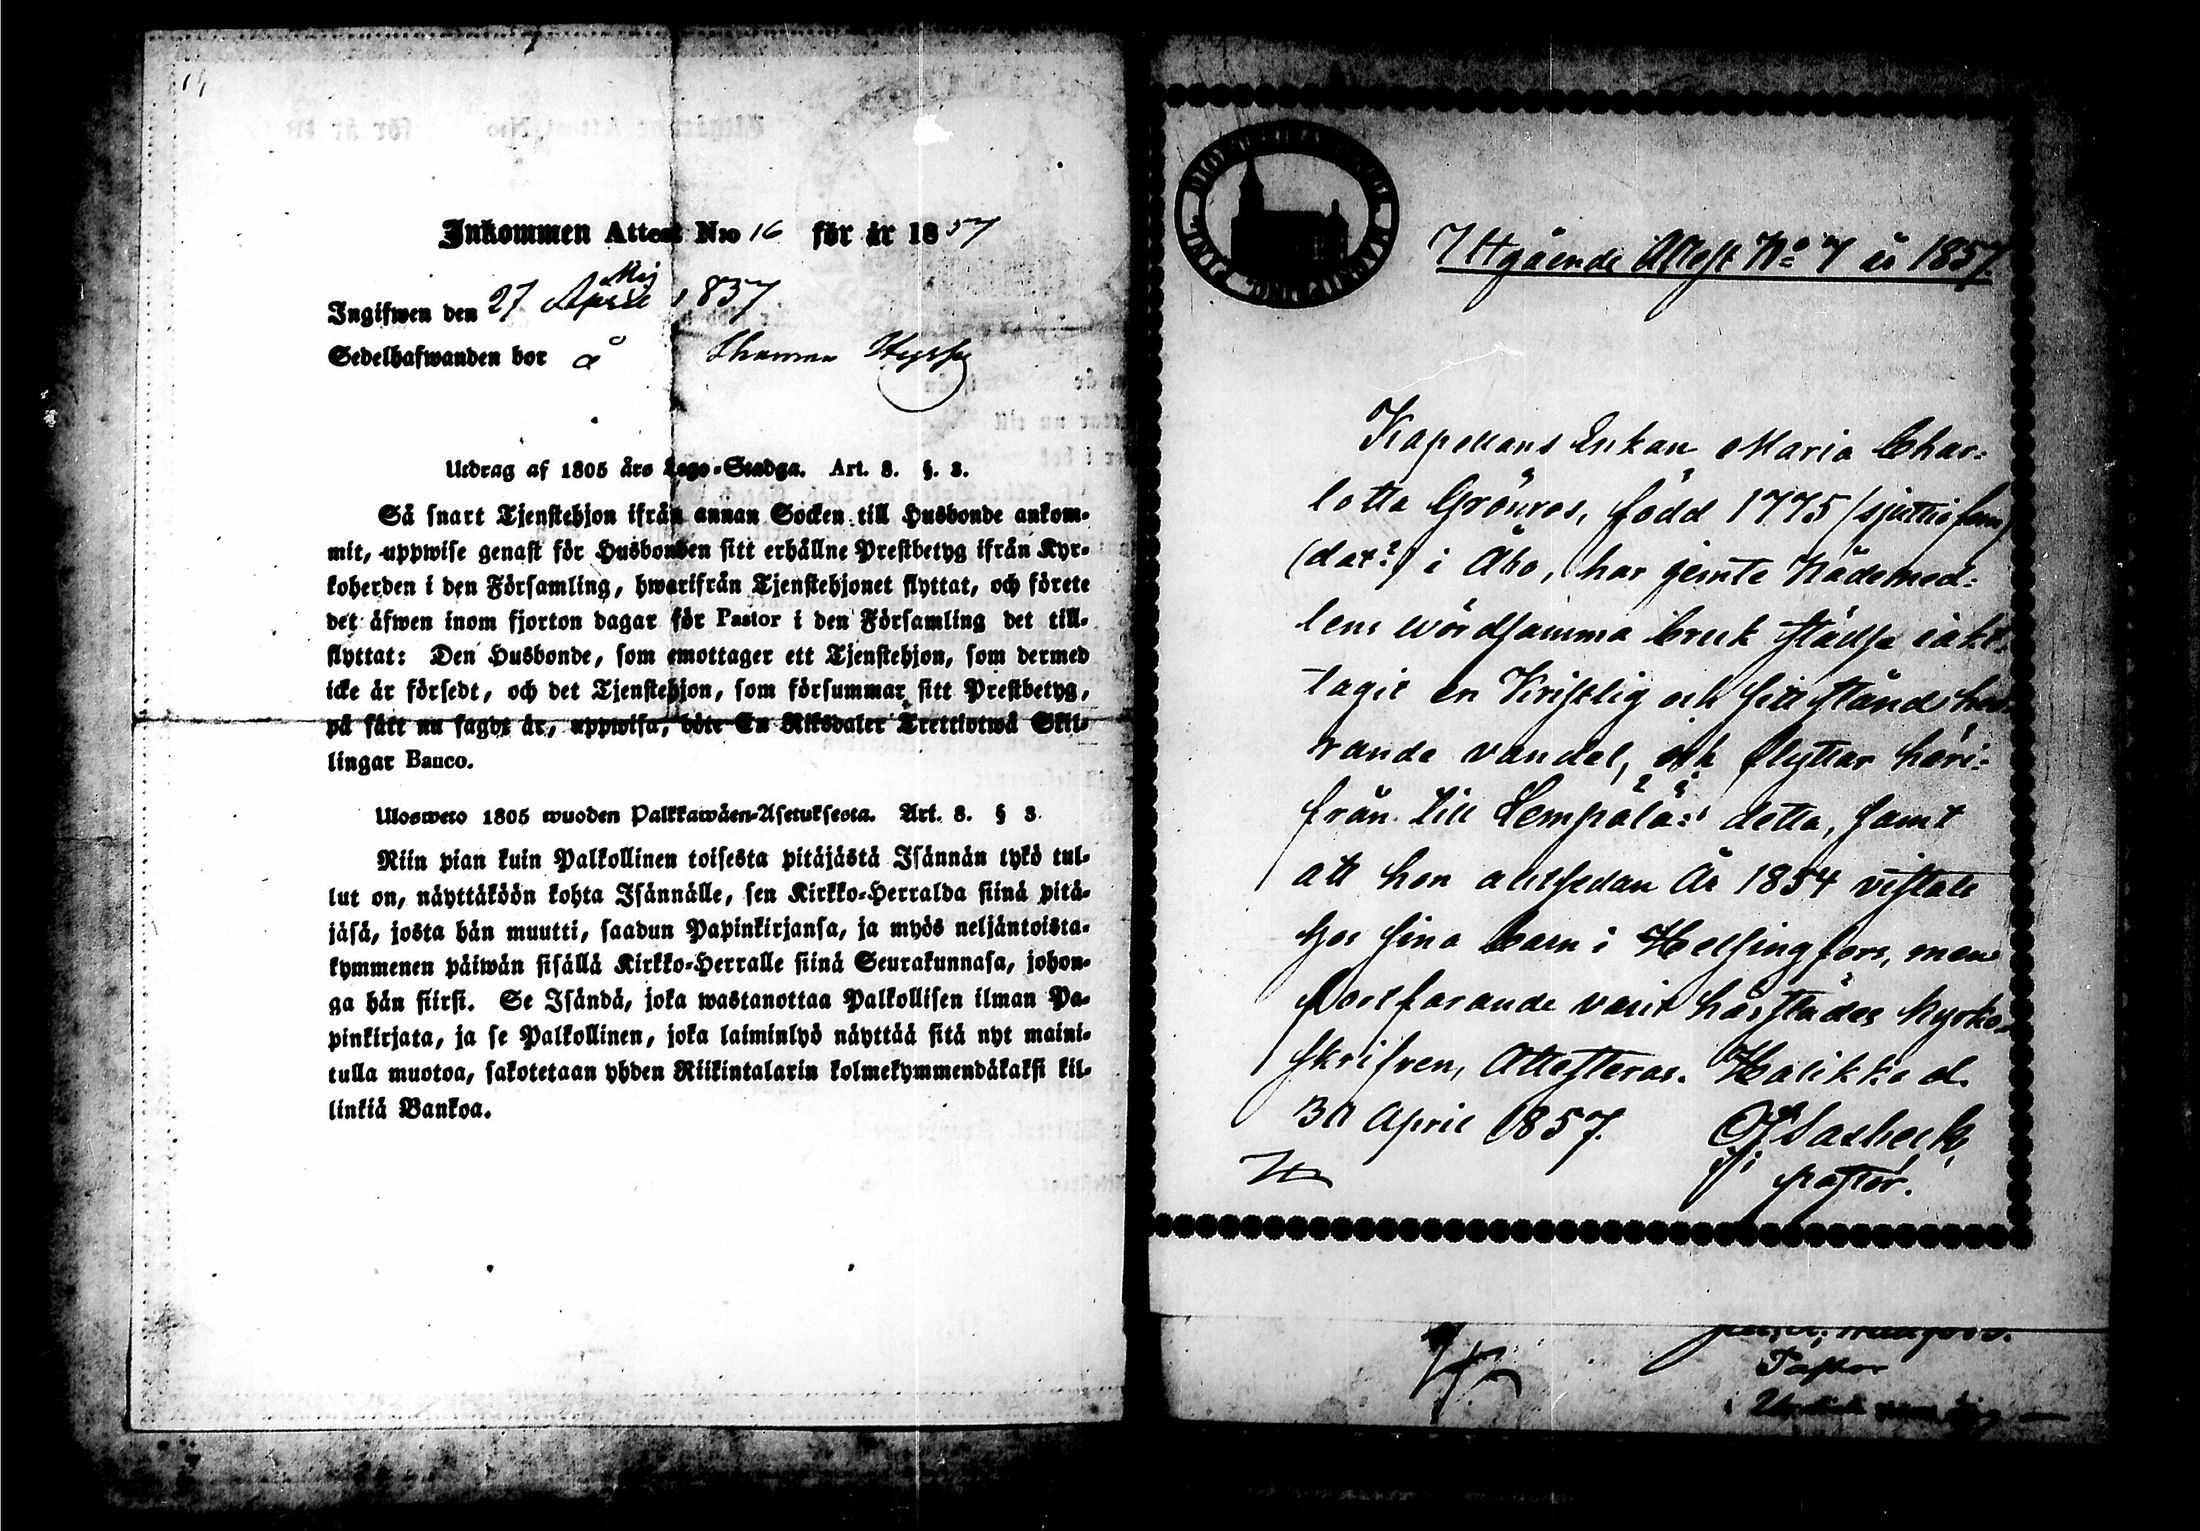 Inkommen Attest N:o 16 för år 1857
Ingifwen den 27 April Maj 1857
Sedelhafwanden bor å
Utdrag af 1805 års Lego-Stadga. Art. 8. §. 3.
Så snart Tjenstehjon ifrån annan Socken till Husbonde ankom-
mit, uppwise genast för Husbonden sitt erhållne Prestbetyg ifrån Kyr-
koherden i den Församling, hwarifrån Tjenstehjonet flyttat, och förete
det äfwen inom fjorton dagar för Pastor i den Församling det till-
flyttat: Den Husbonde, som emottager ett Tjenstehjon, som dermed
icke är försedt, och det Tjenstehjon, som försummar sitt Prestbetyg,
på sätt nu sagdt är, uppwisa, böte En Riksdaler Trettiotwå Skil-
lingar Banco.
Ulosweto 1805 wuoden Palkkawäen-Asetuksesta. Art. 8. § 3.
Niin pian kuin Palkollinen toisesta pitäjästä Isännän tykö tul-
lut on, näyttäköön kohta Isännälle, sen Kirkko-Herralda siinä pitä-
jäsä, josta hän muutti, saadun Papinkirjansa, ja myös neljäntoista-
kymmenen päiwän sisällä Kirkko-Herralle siinä Seurakunnasa, johon-
ga hän siirsi. Se Isändä, joka wastanottaa Palkollisen ilman Pa-
pinkirjata, ja se Palkollinen, joka laiminlyö näyttää sitä nyt maini-
tulla muotoa, sakotetaan yhden Riikintalarin kolmekymmendäkaksi kil-
linkiä Bankoa.
Utgående Attest No 7 år 1857.
Kapellans Enkan Maria Char-
lotta Grönros, född 1775 (sjuttiofem)
(dat?) i Åbo, har jemte Nådemed-
lens wördsamma bruk städse iakt-
tagit en Kristlig och sitt stånd hed-
rande vandel, och flyttar häri-
från till Lempälä: detta, samt
att hon alltsedan år 1854 vistats
hos sina barn i Helsingfors, men
fortfarande varit härstädes kyrko-
skrifven, Attesteras. Halikko d.
30 April 1857.
pastor.
Pastor